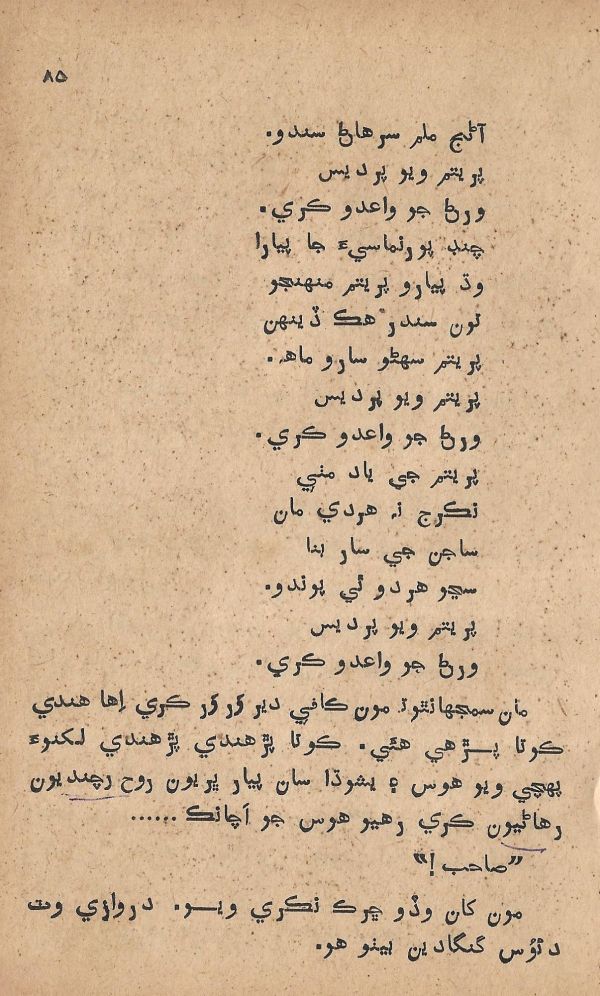 ۸۵
آڻيج ملم سرهاڻ سندو.
پريتم ويو پرديس
ورڻ جو واعدو ڪري.
چنڊ پورنماسيءَ جا پيارا
وڌ پيارو پريتم منهنجو
تون سندر هڪ ڏينهن
پريتم سهڻو سارو ماهه.
پريتم ويو پرديس
ورڻ جو واعدو ڪري.
پريتم جي ياد مٺي
نڪرج نہ هردي مان
ساجن جي سار بنا
سڃو هردو ٿي پوندو.
پريتم ويو پرديس
ورڻ جو واعدو ڪري.
مان سمجهانٿو تہ مون ڪافي دير ورور ڪري اِها هندي
ڪوتا پـڙهي هئي. ڪوتا پڙهندي پڙهندي لکنوءَ
پهچي ويو هوس ۽ يشوڌا سان پيار ڀريون روح رچنديون
رهاڻيون ڪري رهيو هوس جو اَچانڪ ......
”صاحب !“
مون کان وڏو ڇرڪ نڪري ويـو. دروازي وٽ
دئوس گنگادين بيٺو هو.